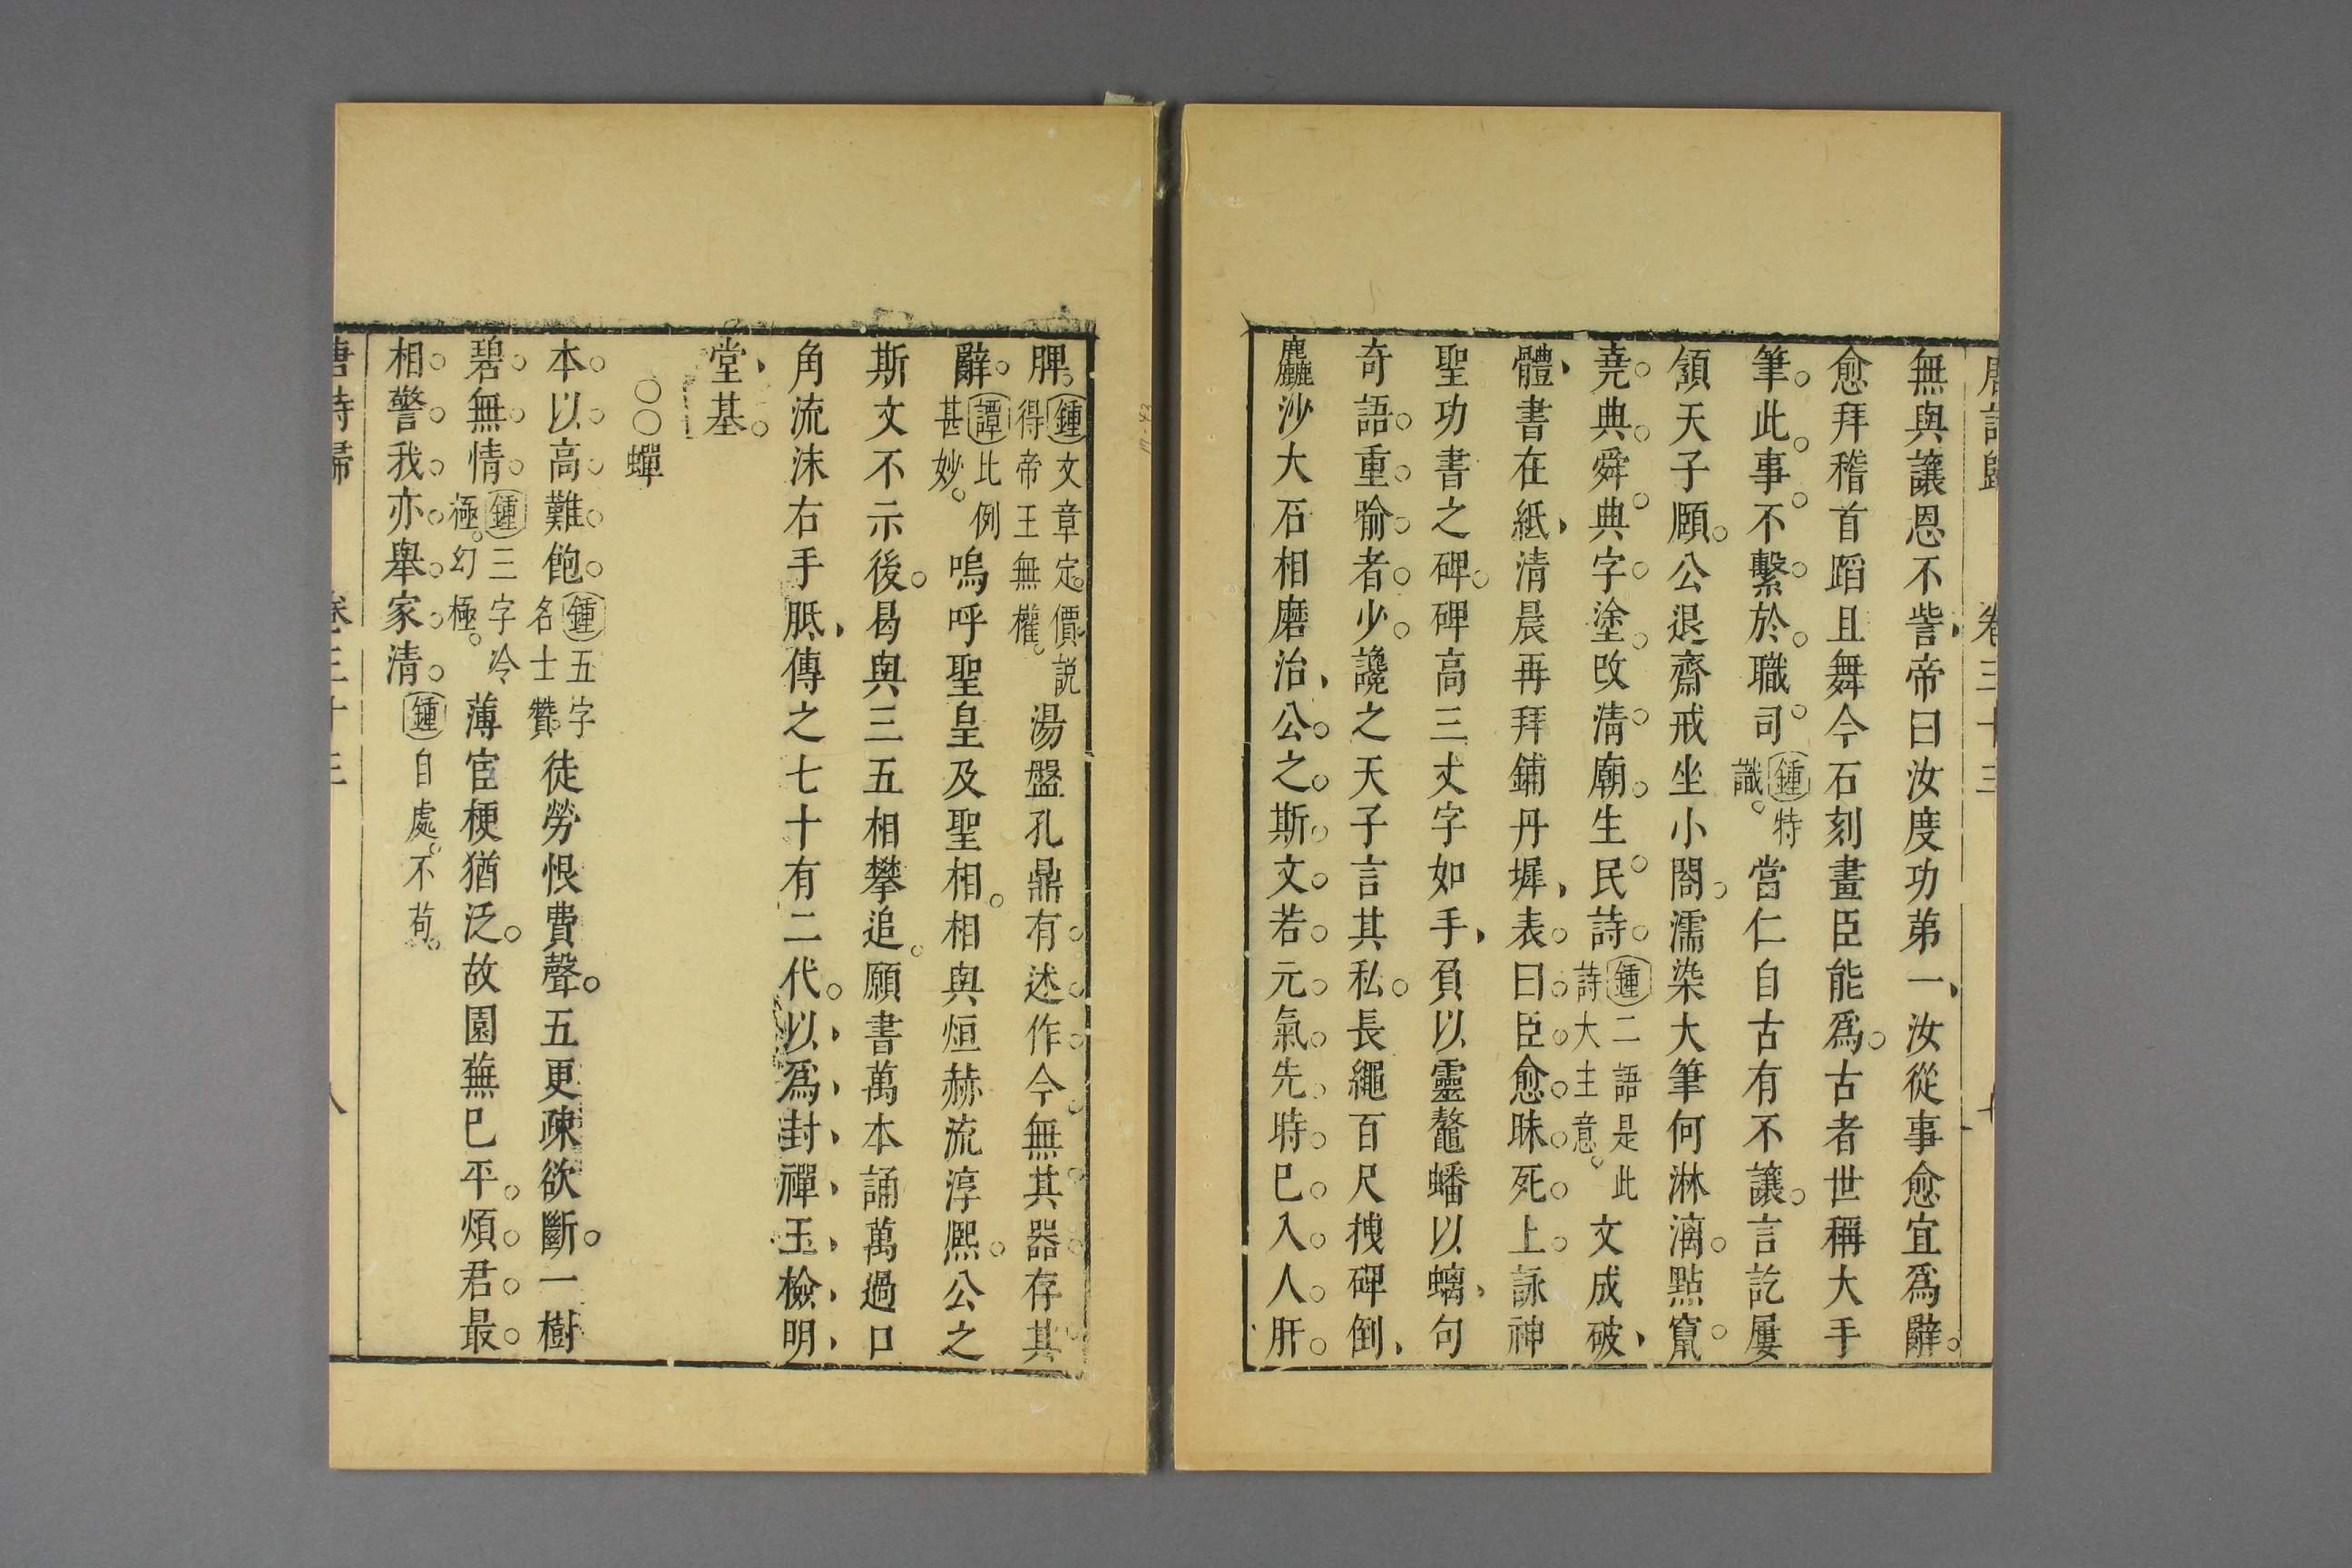 唐詩歸 卷三十三 七
無與讓恩不訾帝曰汝度功第一汝從事愈宜爲辭
愈拜稽首蹈且舞今石刻畫臣能爲古者世稱大手
筆此事不繫於職司鍾特識當仁自古有不讓言訖屢
頷天子頤公退齋戒坐小閤濡染大筆何淋漓點竄
堯典舜典字塗改清廟生民詩鍾二語是此詩大主意文成破
體書在紙清晨再拜鋪丹墀表曰臣愈昧死上詠神
聖功書之碑碑高三丈字如手負以靈鼇蟠以螭句
奇語重喻者少讒之天子言其私長繩百尺拽碑倒
麤沙大石相磨治公之斯文若元氣先時已入人肝
脾鍾文章定價說得帝王無權湯盤孔鼎有述作今無其器存其
辭譚比例甚妙嗚呼聖皇及聖相相與烜赫流淳熈公之
斯文不示後曷與三五相攀追願書萬本誦萬過口
角流沫右手胝傳之七十有二代以爲封禪玉檢明
堂基
○○蟬
本以高難飽鍾五字名士贊徒勞恨費聲五更疎欲斷一樹
碧無情鍾三字冷極幻極薄宦梗猶泛故園蕪已平煩君最
相警我亦舉家清鍾自處不苟
唐詩歸 卷三十三 八